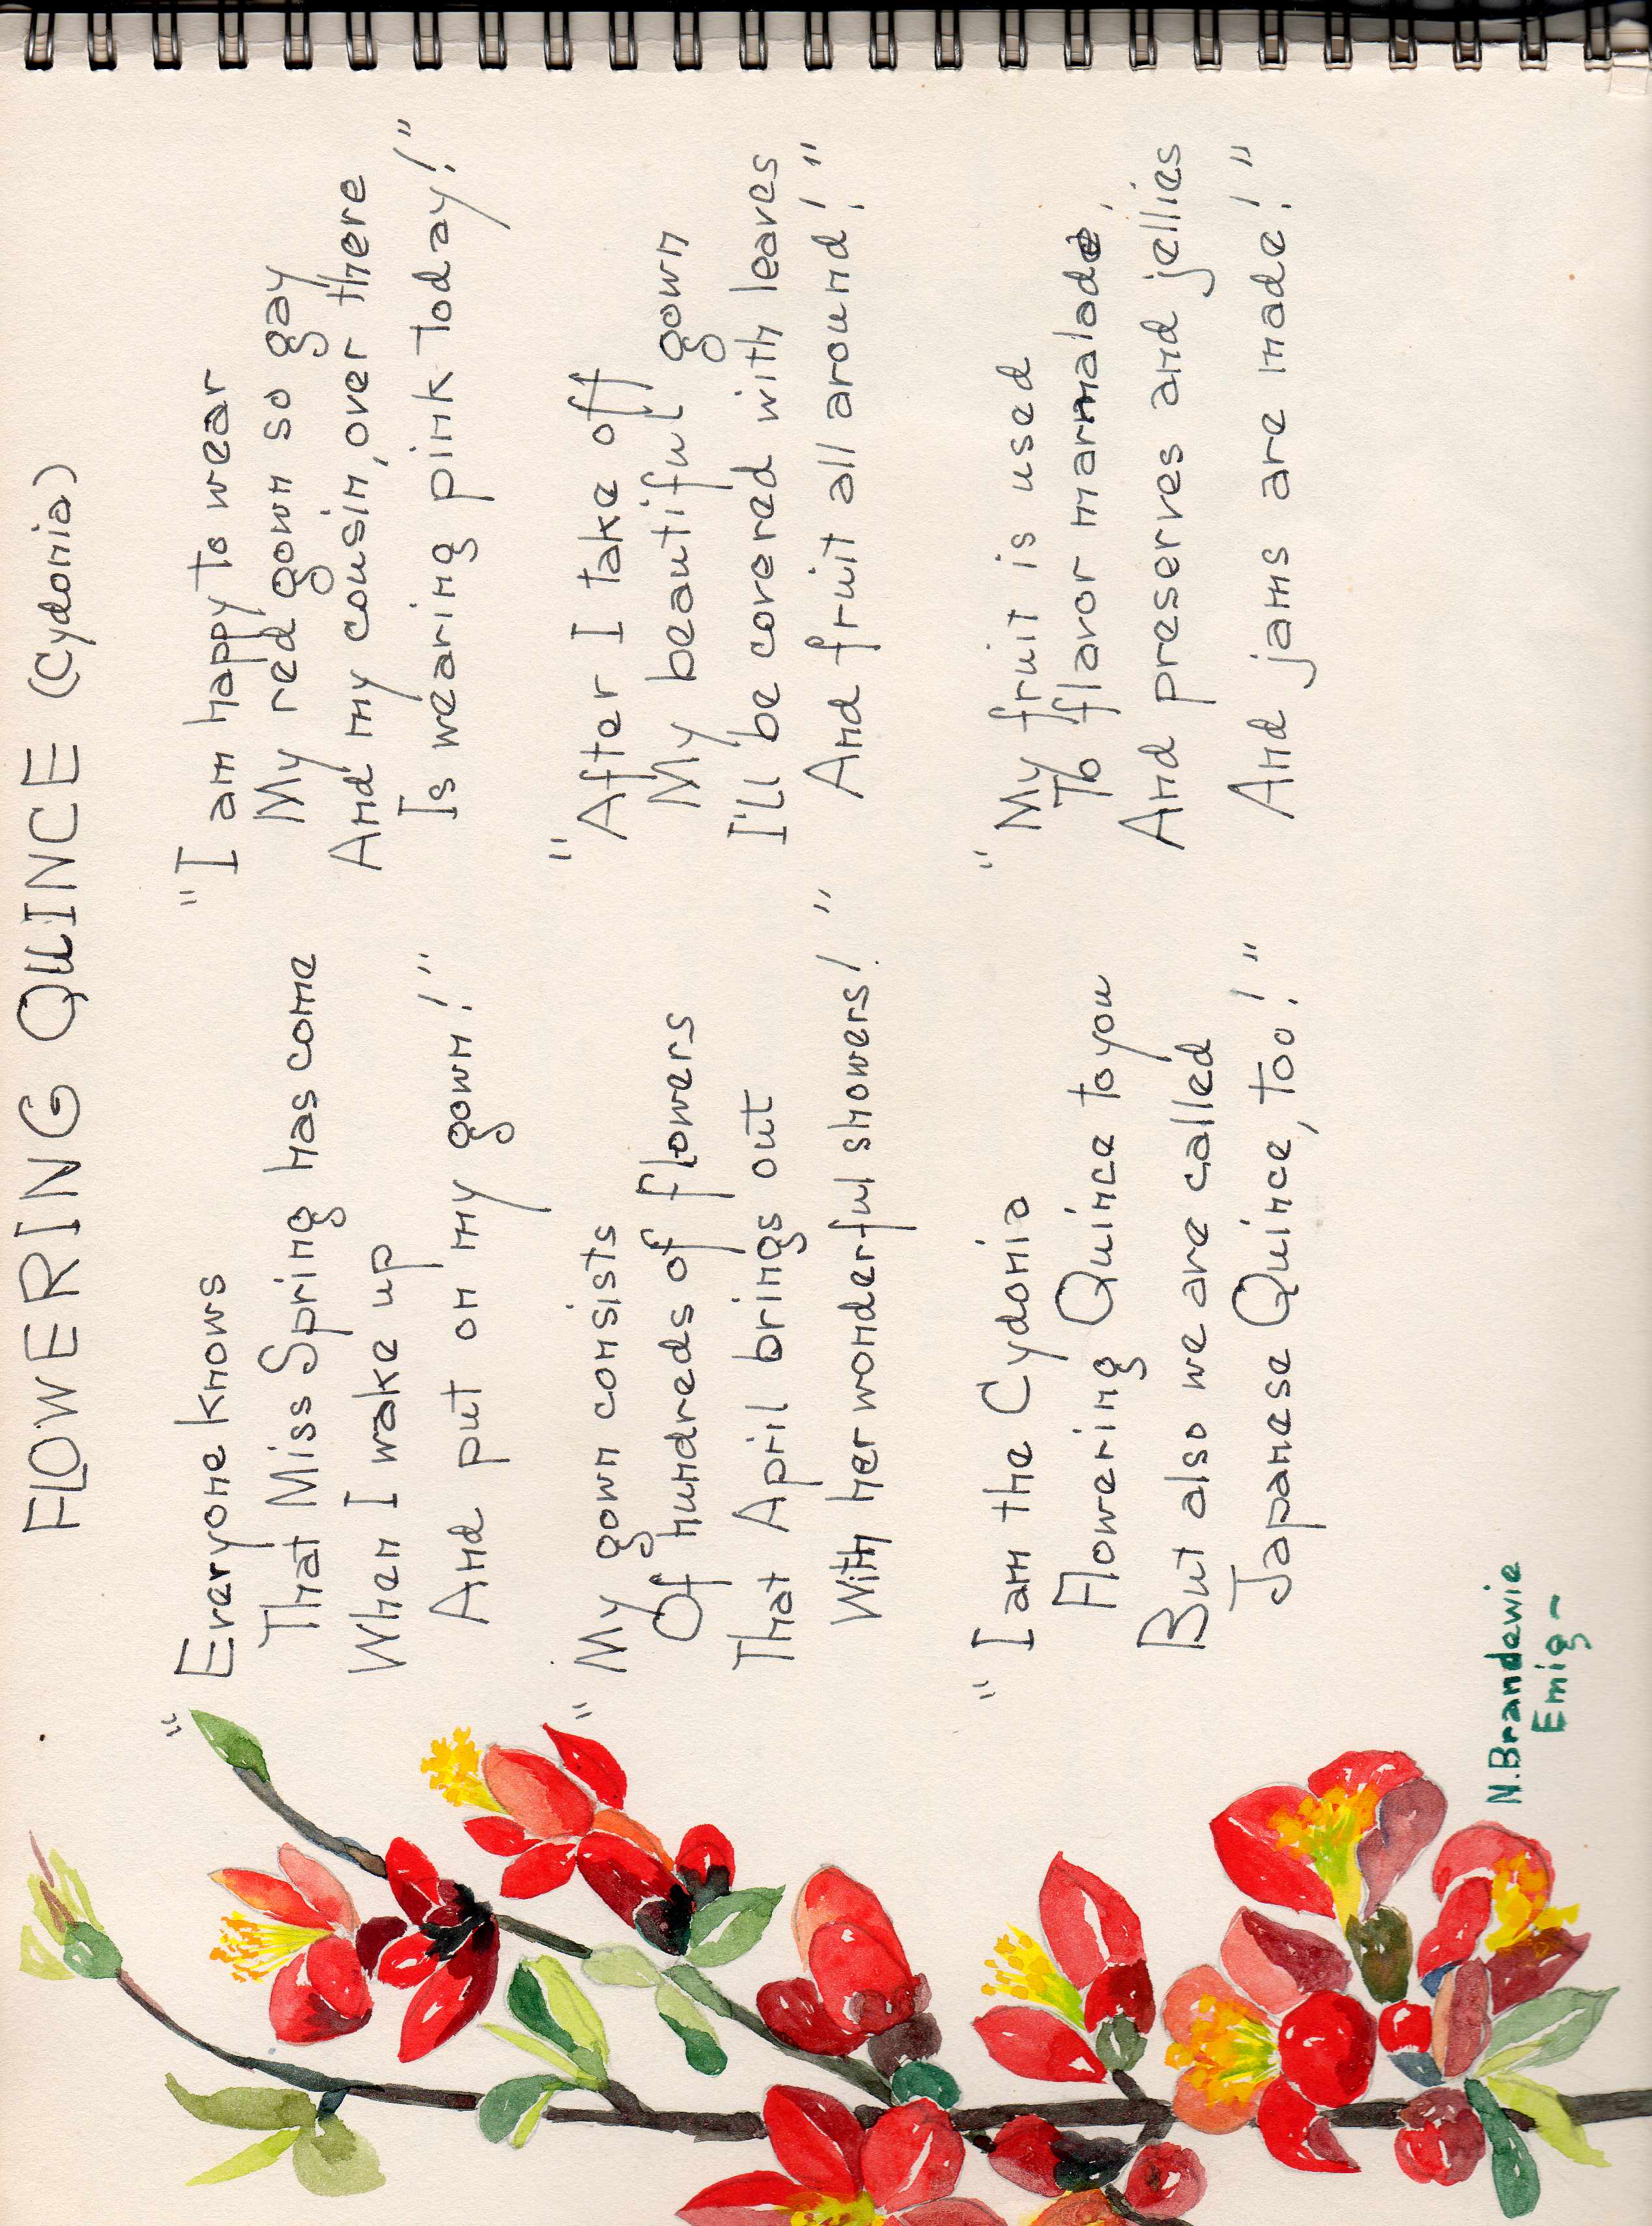 FLOWERING QUINCE (Cydonia)
"Everyone knows
That Miss Spring has come
When I wake up
And put on my gown!"
"My gown consists
Of hundreds of flowers
That April brings out
With her wonderful showers!"
"I am the Cydonia
Flowering Quince to you
But also we are called
Japanese Quince, too!"
"I am happy to wear
My red gown so gay
And my cousin, over there
Is wearing pink today!"
"After I take off
My beautiful gown
I'll be covered with leaves
And fruit all around!"
"My fruit is used
To flavor marmalade,
And preserves and jellies
And jams are made!"
N. Brandewie
Emig~